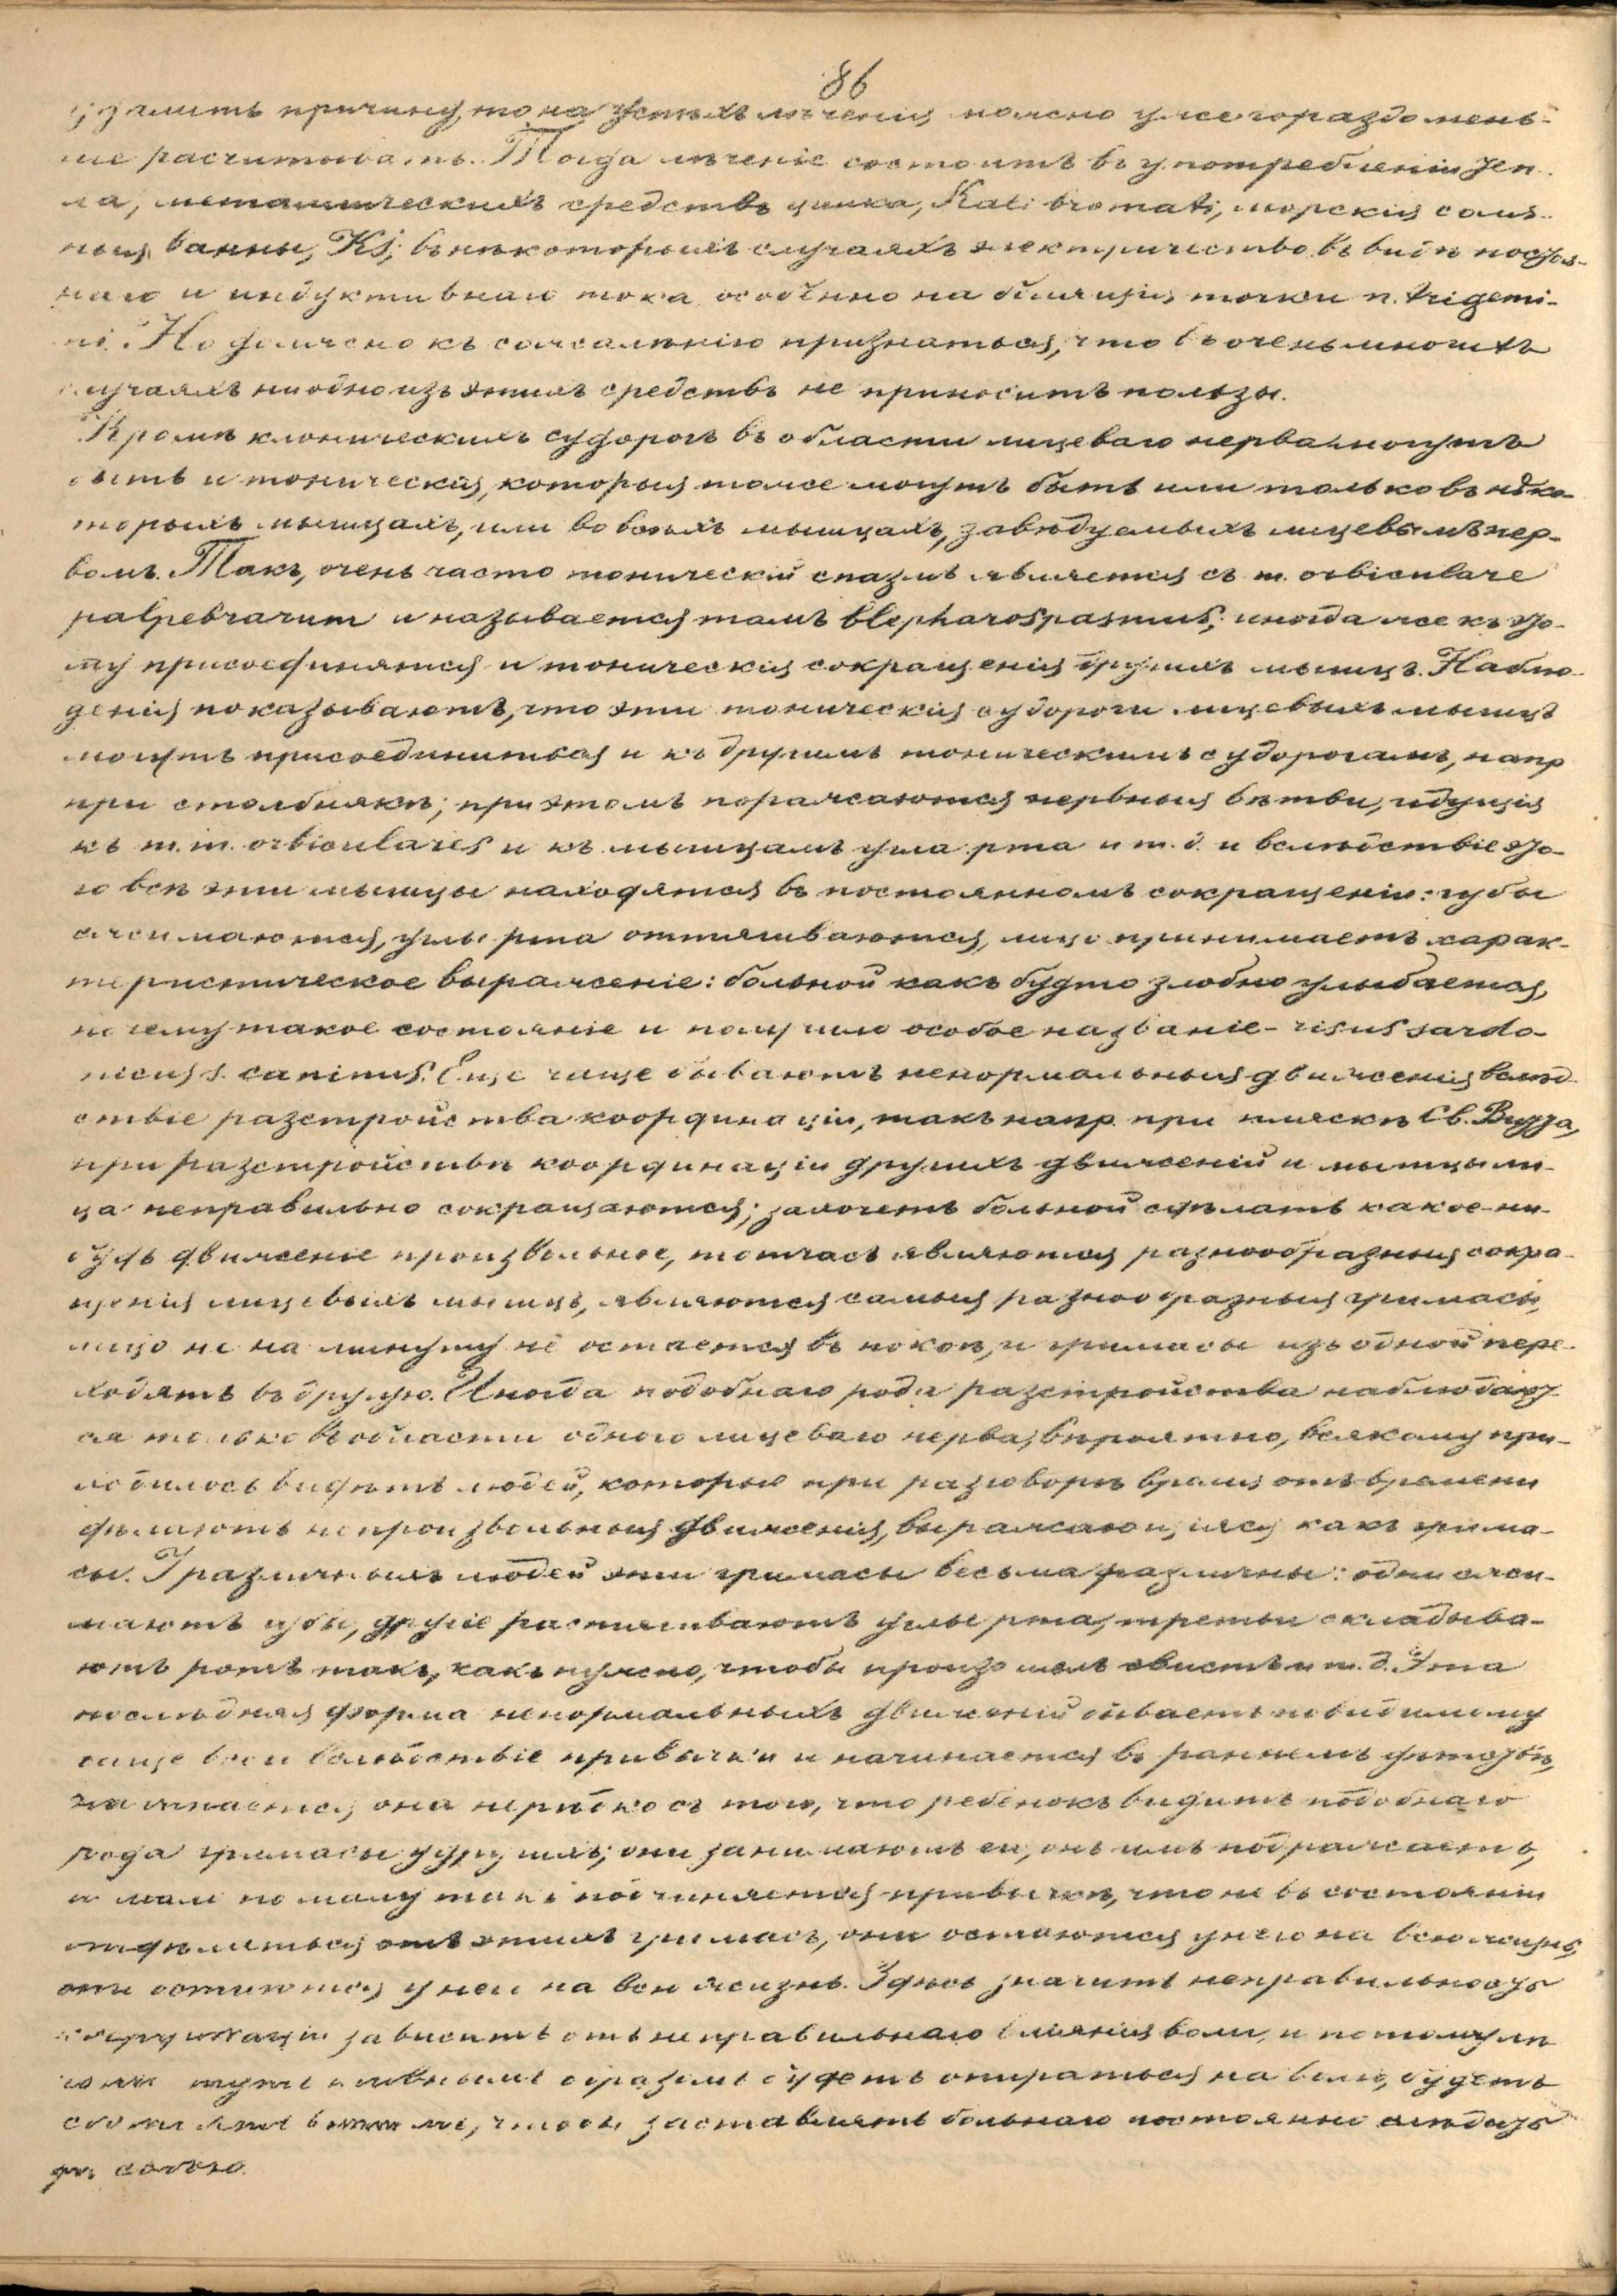 86
удалить причину, то на успехъ лѣченія можно уже гораздо мень-
ше расчитывать. Тогда лѣченіе состоитъ въ употребленіи
металлическихъ средствъ цинка, Kali bromati, морскія солё-
ныя ванны, KJ; въ нѣкоторыхъ случаяхъ электричество въ видѣ постоя-
наго и индуктивнаго тока особенно на болящія точки n. trigemi-
ni. Но должно къ сожалѣнію признаться, что въ очень многихъ
случаяхъ ни одно изъ этихъ средствъ не приноситъ пользы.
Кромѣ клоническихъ судорогъ въ области лицеваго нерва могутъ
быть и тоническія, которыя тоже могутъ быть или только въ нѣко-
торыхъ мышцахъ, или во всѣхъ мышцахъ, завѣдуемыхъ лицевымъ нер-
вомъ. Такъ, очень часто тоническій спазмъ является съ m. orbiculare
palpebrarum и называется тамъ blepharospasmus; иногда же къ это-
му присоединяются и тоническія сокращенія другихъ мышцъ. Наблю-
денія показываютъ, что эти тоническія судороги лицевыхъ мышцъ
могутъ присоединиться и къ другимъ тоническимъ судорогамъ, напр
при столбнякѣ; при этомъ поражаются нервныя вѣтви, идущія
къ m.m. orbiculares и къ мышцамъ угла рта и т. д. и вслѣдствіе это-
го всѣ эти мышцы находятся въ постоянномъ сокращеніи: губы
сжимаются, углы рта оттягиваются, лицо принимаетъ харак-
теристическое выраженіе: больной какъ будто злобно улыбается,
почему такое состояніе и получило особое названіе - risus sardo-
nicus s. caninus. Еще чаще бываютъ ненормальныя движенія вслѣд-
ствіе разстройства координаціи, такъ напр при пляскѣ Св. Витта,
при разстройствѣ координаціи другихъ движеній и мышцы ли-
ца неправильно сокращаются; захочетъ больной сдѣлать какое-ни-
будь движеніе произвольное, тотчасъ являются разнообразныя сокра-
щенія лицевыхъ мышцъ, являются самыя разнообразныя гримасы,
лицо не на минуту не остается въ покоѣ, и гримасы изъ одной пере-
ходятъ въ другую. Иногда подобнаго рода разстройства наблюдают
ся только въ области одного лицеваго нерва; вѣроятно, всякому при-
ходилось видѣть людей, которые при разговорѣ время отъ времени
дѣлаютъ непроизвольныя движенія, выражающіяся какъ грима-
сы. У различныхъ людей эти гримасы весьма различны: одни сжи-
маютъ губы, другіе растягиваютъ углы рта, третьи складыва-
ютъ ротъ такъ, какъ нужно, чтобы произошелъ свистъ и т. д. Эта
послѣдняя форма ненормальныхъ движеній бываетъ повидимому
чаще всего вслѣдствіе привычки и начинается въ раннемъ дѣтствѣ,
начинается она нерѣдко съ того, что ребенокъ видитъ подобнаго
рода гримасы у другихъ; они занимаютъ его, онъ имъ подражаетъ,
и мало по малу такъ подчиняется привычкѣ, что не въ состояніи
отдѣлаться отъ этихъ гримасъ, они остаются у него на всю жизнь,
они остаются у него на всю жизнь. Здѣсь значитъ неправильность
координаціи зависитъ отъ неправильнаго вліянія воли, и потому лѣ-
ченіе тутъ главнымъ образомъ будетъ опираться на волю, будетъ
состоять въ томъ, чтобы заставлять больнаго постоянно слѣдить
за собою.